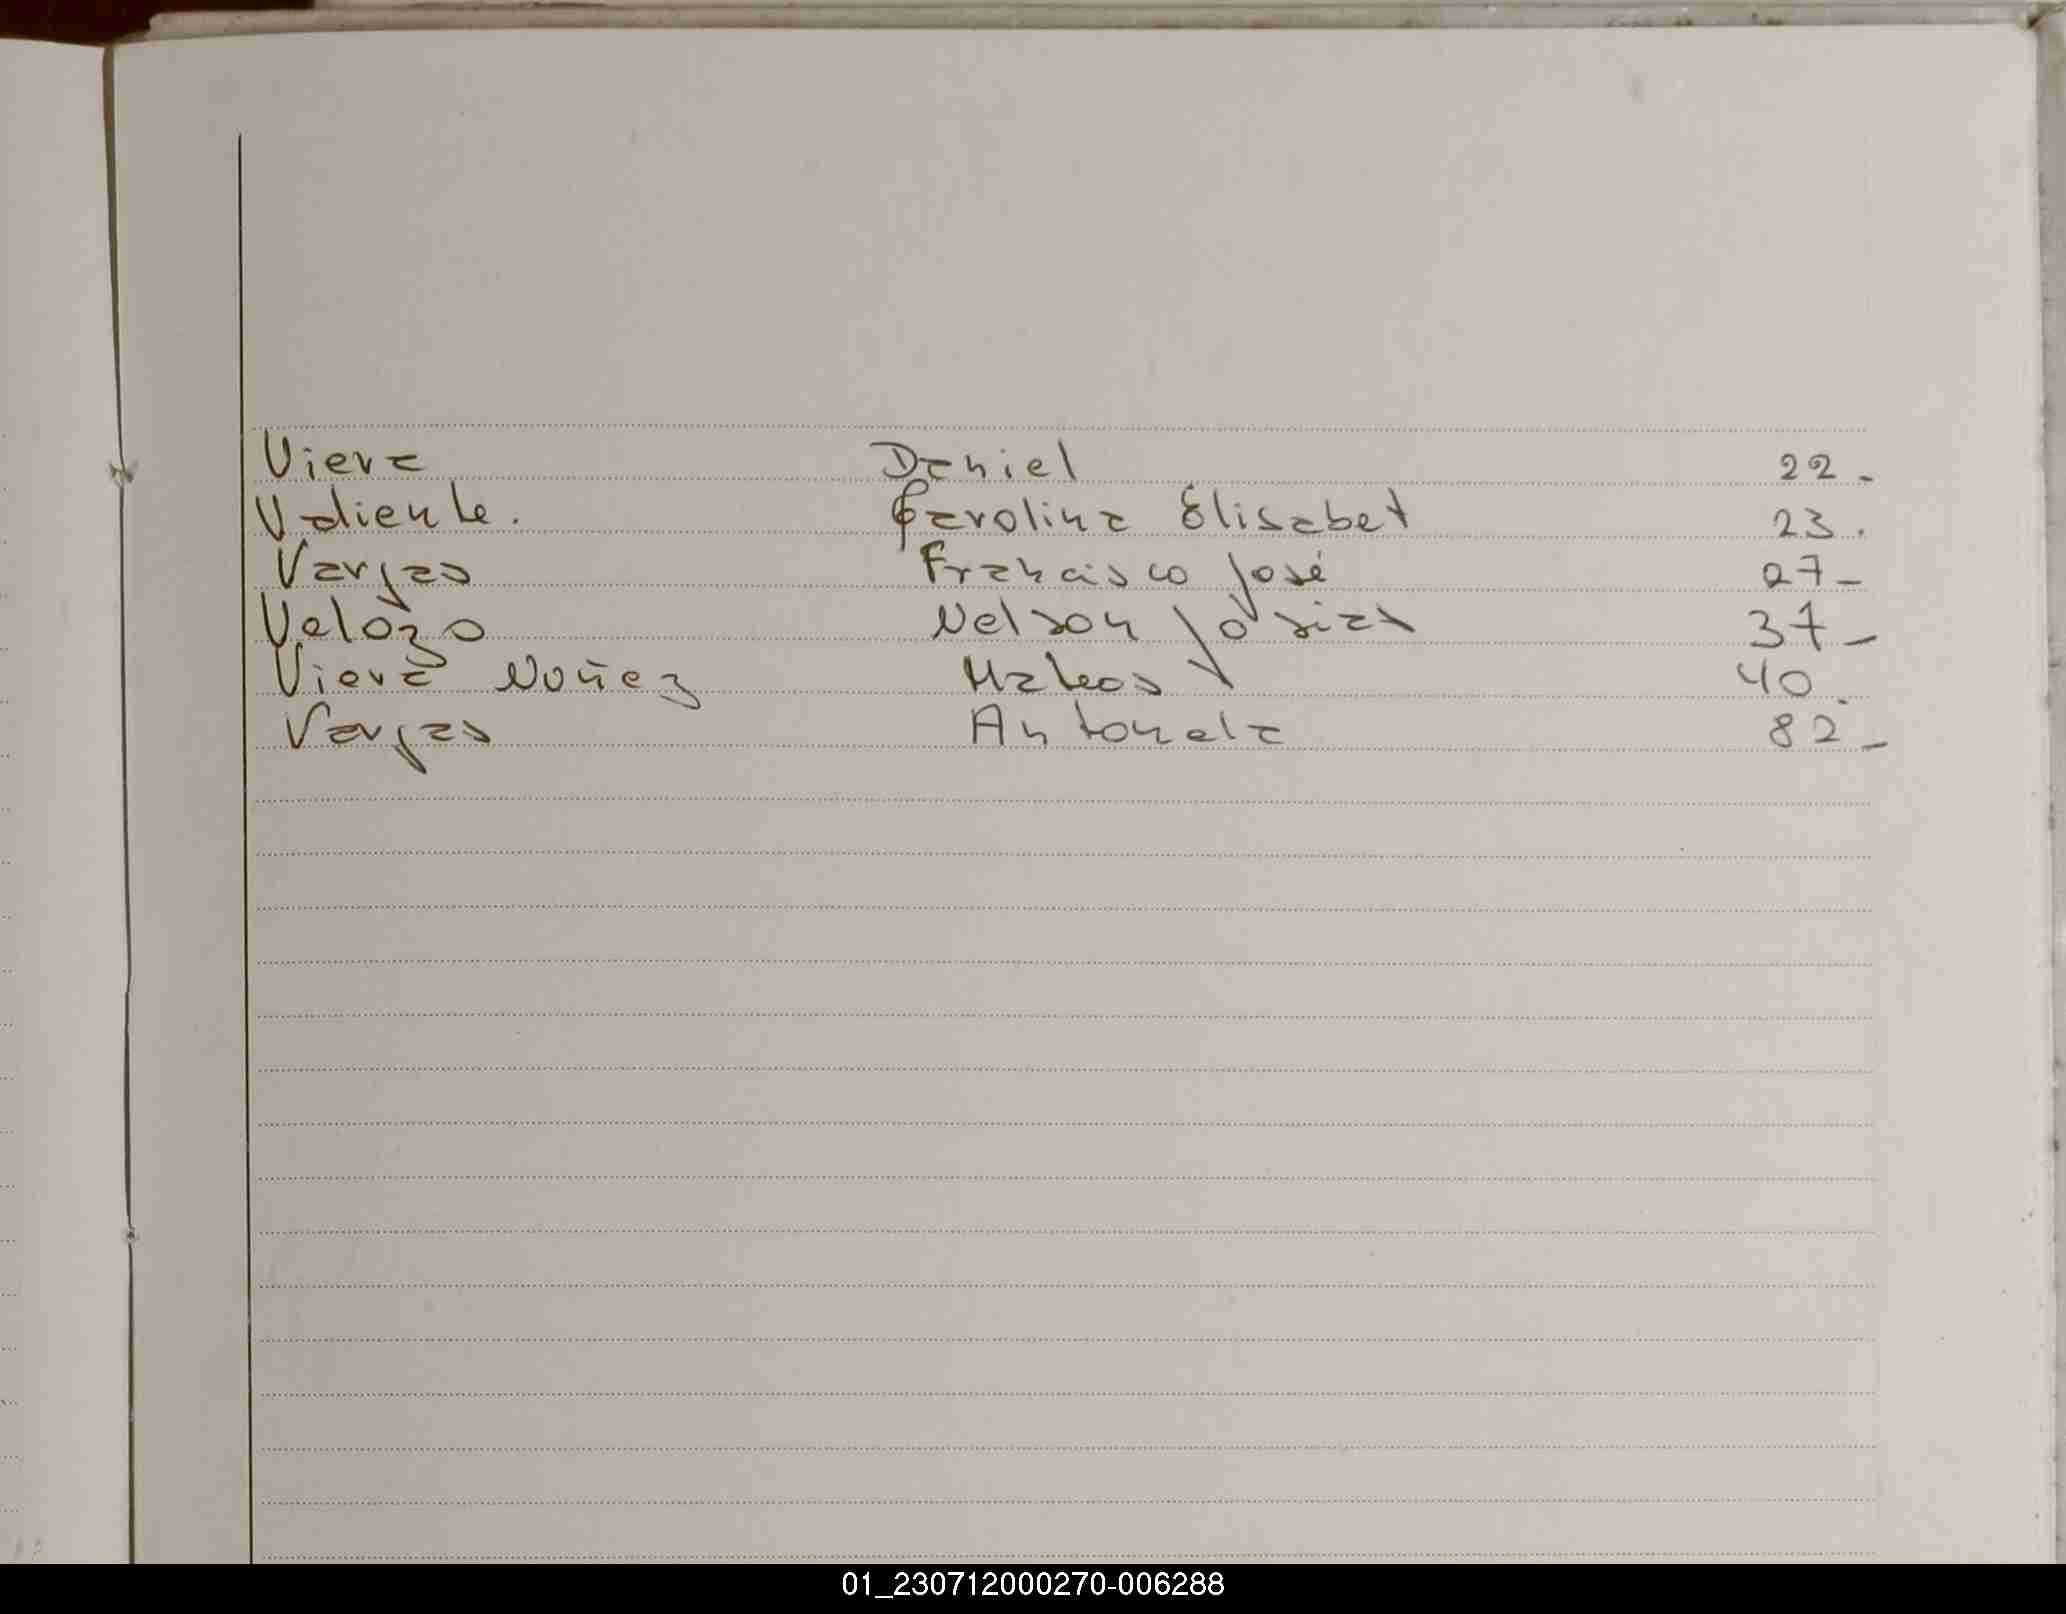 Viera Daniel 22-
Valiente. Carolina Elisabet 23.
Vargas Francisco José 27-
Velozo Nelson Josias 37-
Viera Nuñez Mateos 40.
Vargas Antonela 82-
01_230712000270-006288